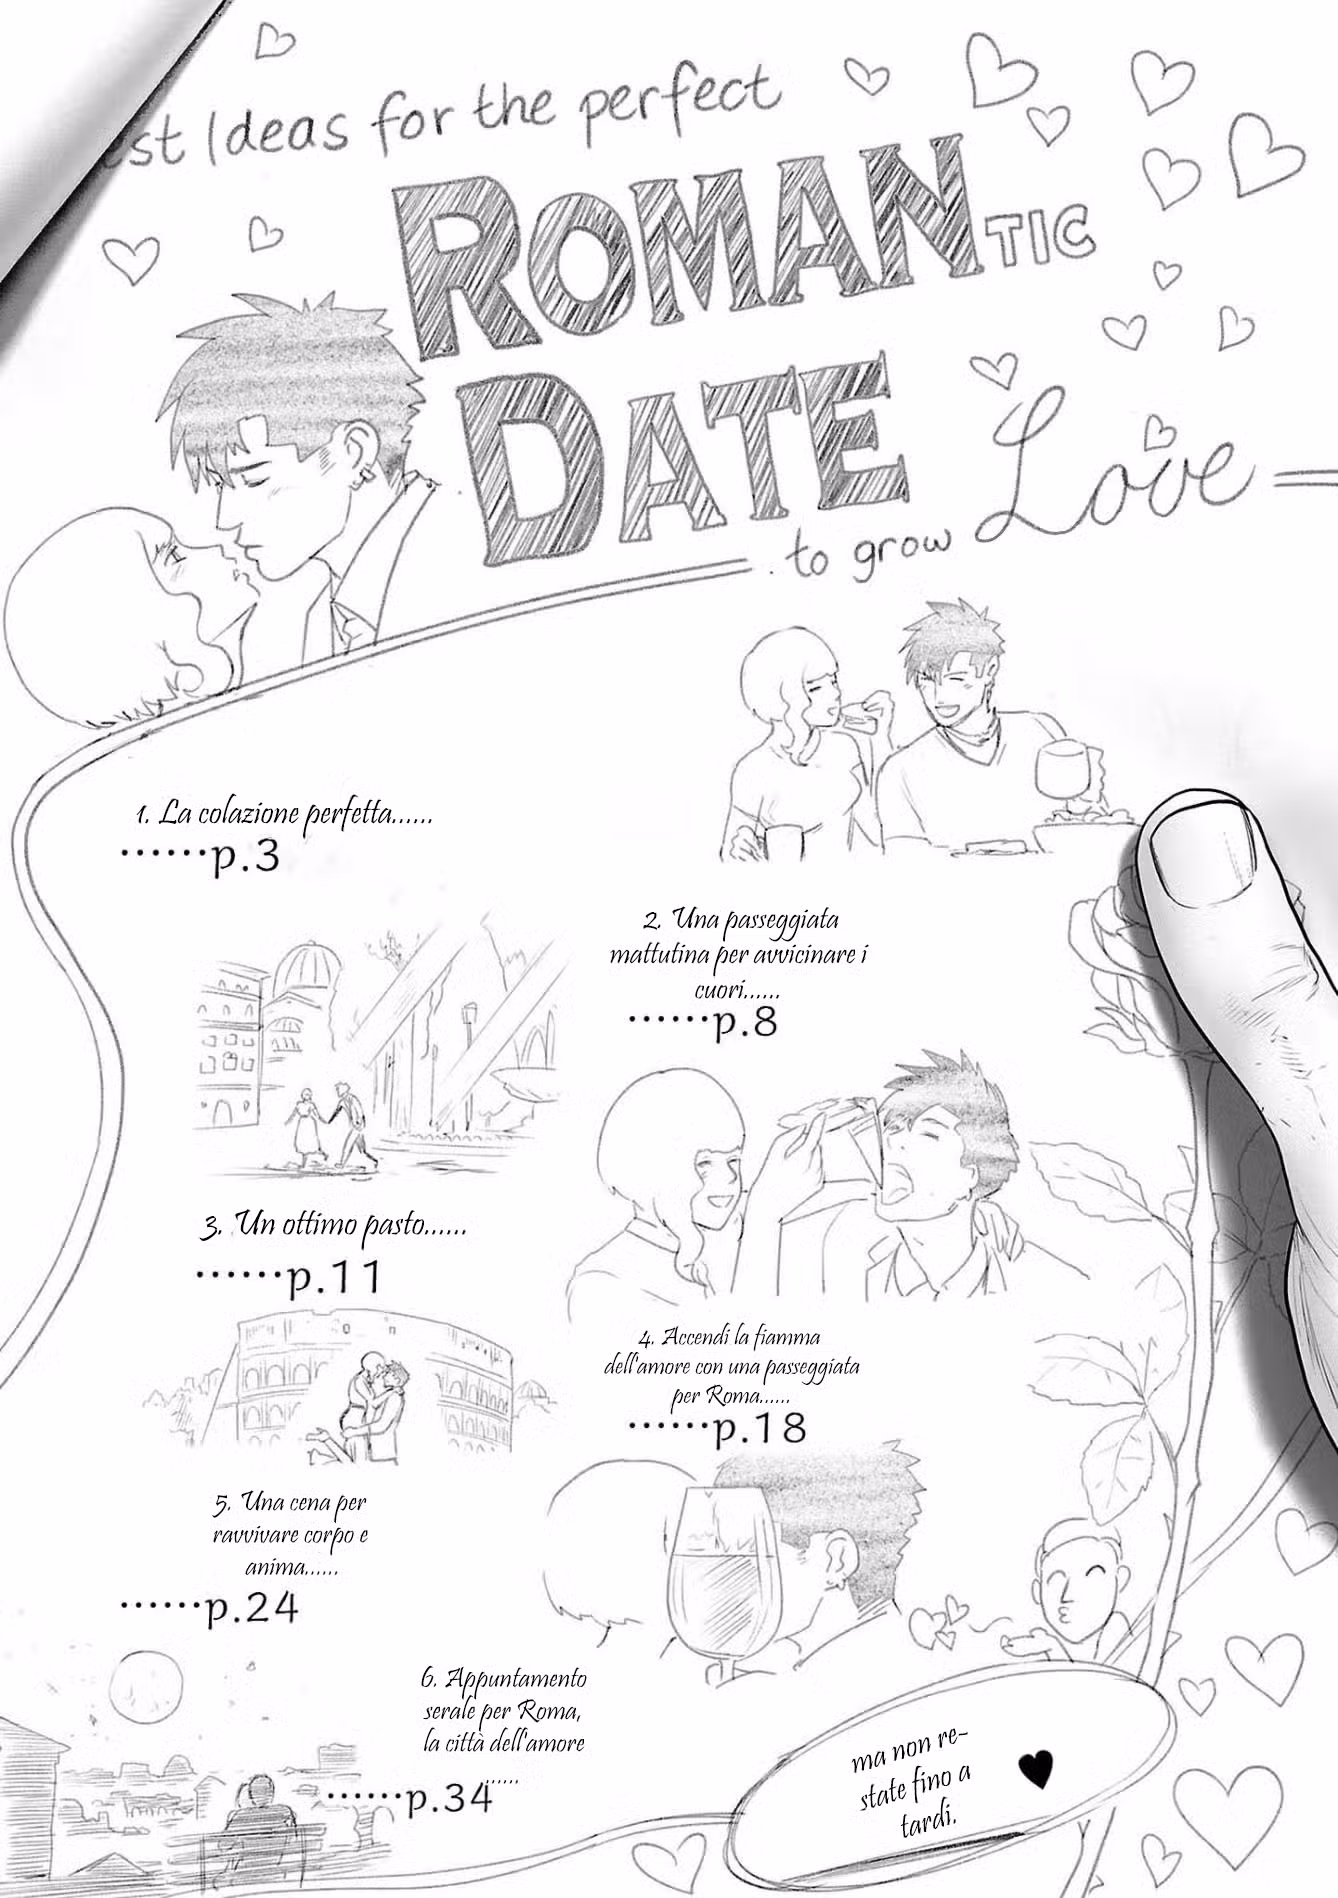 Ideas for the perfect
ROMANTIC
DATE
to grow Love
1. La colazione perfetta......
......p.3
2. Una passeggiata
mattutina per avvicinare i
cuori......
......p.8
3. Un ottimo pasto......
......p.11
4. Accendi la fiamma
dell'amore con una passeggiata
per Roma......
......p.18
5. Una cena per
ravvivare corpo e
anima......
......p.24
6. Appuntamento
serale per Roma,
la città dell'amore
......
......p.34
ma non re-
state fino a
tardi.